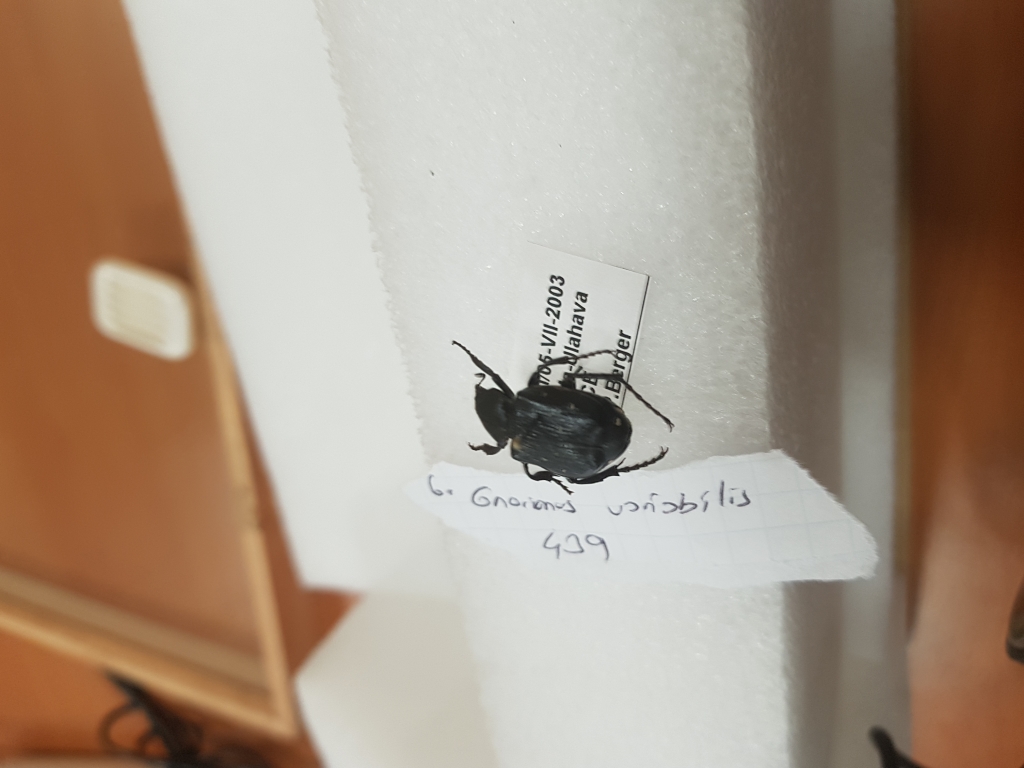 05-VII-2003
.Berger
6. Gnorimus variabilis
439